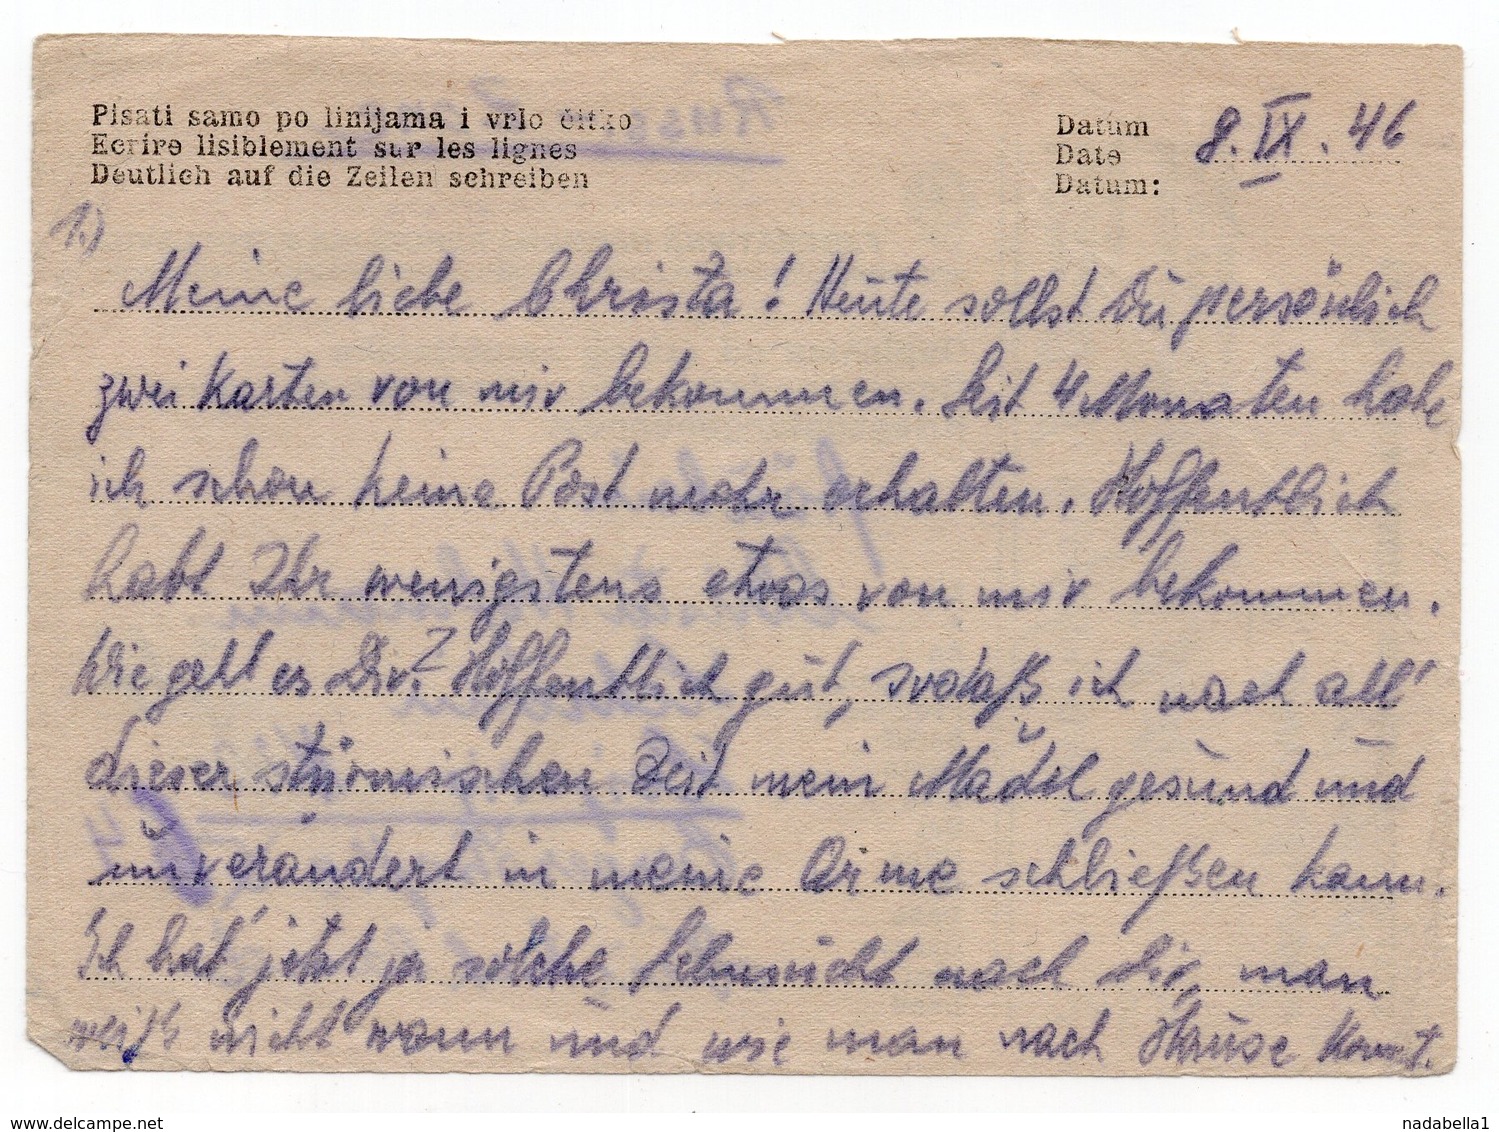 Pisati samo po linijama i vrlo čitko
Ecrire lisiblement sur les lignes
Deutlich auf die Zeilen schreiben
Datum
Date
Datum:
8. IX. 46
1.)
Meine liebe Christa! Heute sollst Du persönlich
zwei Karten von mir bekommen. Seit 4 Monaten habe
ich schon keine Post mehr erhalten. Hoffentlich
habt Ihr wenigstens etwas von mir bekommen.
Wie geht es Dir? Hoffentlich gut, sodaß ich nach all'
dieser stürmischen Zeit mein Mädel gesund und
unverändert in meine Arme schließen kann.
Ich hab' jetzt ja solche Sehnsucht nach Dir, man
weiß nicht wann und wie man nach Hause kommt.
delcampe.net
nadabella1